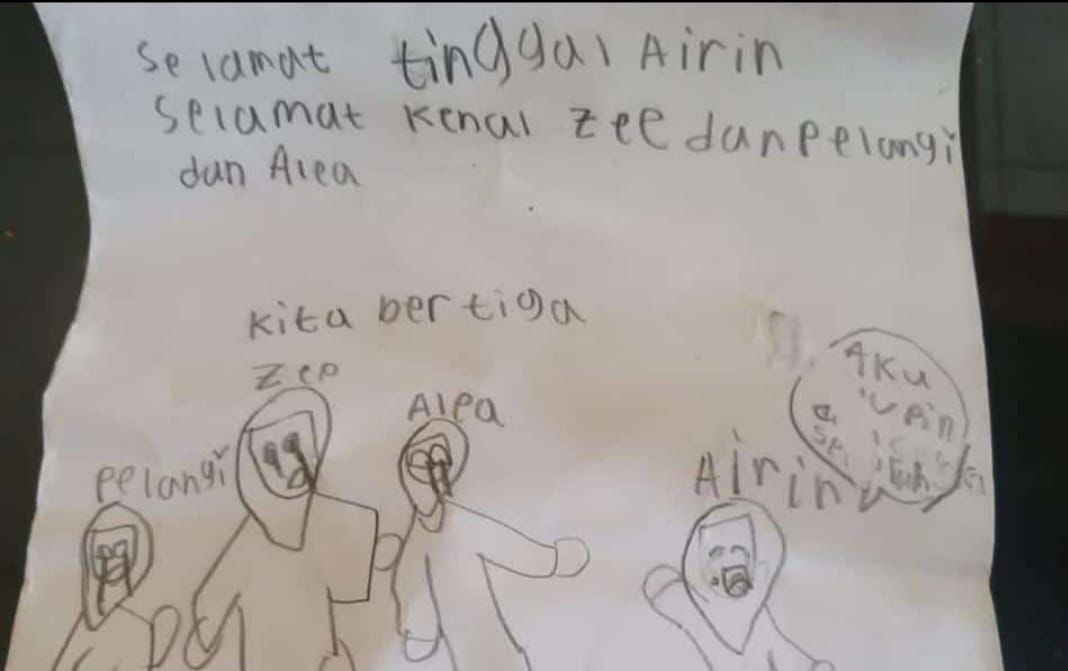 Selamat tinggal Airin
Selamat kenal zee dan pelangi
dan Alea
Kita bertiga
Zee
Alea
Pelangi
Airin
Aku